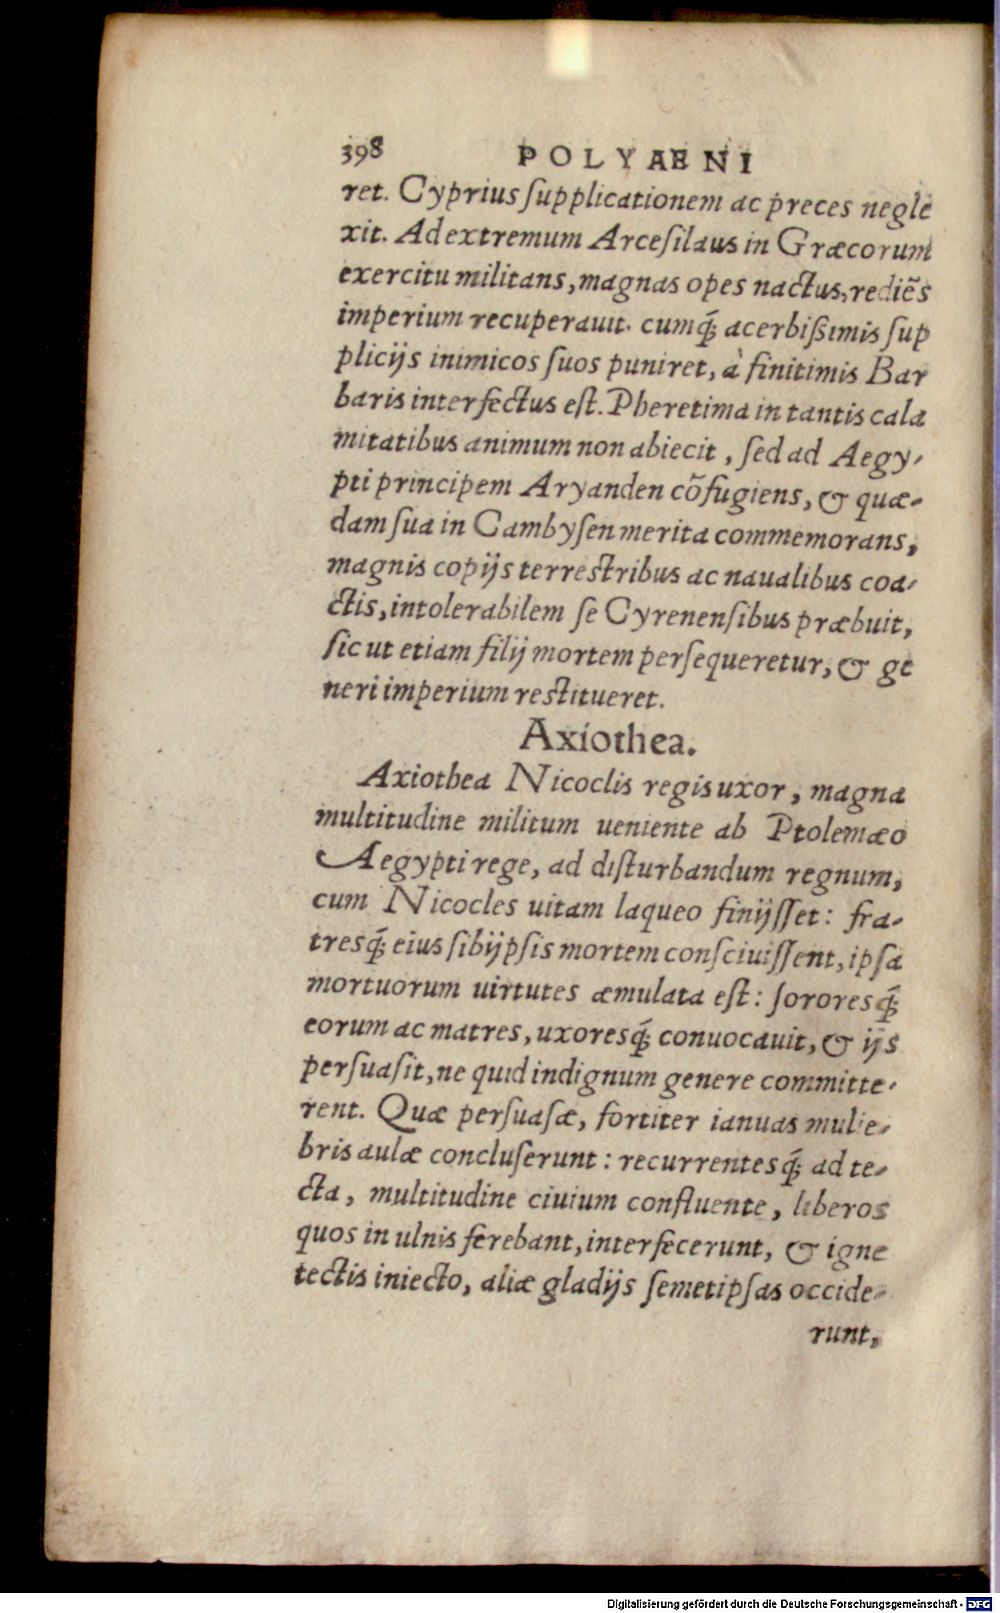 398 POLYAENI
ret. Cyprius ſupplicationem ac preces neglẽ
xit. Ad extremum Arceſilaus in Græcorum
exercitu militans, magnas opes nactus, rediẽs
imperium recuperauit. cumq́; acerbißimis ſup
plicijs inimicos ſuos puniret, à finitimis Bar
baris interfectus eſt. Pheretima in tantis cala
mitatibus animum non abiecit, ſed ad Aegy-
pti principem Aryanden cõfugiens, & quæ-
dam ſua in Cambyſen merita commemorans,
magnis copijs terrestribus ac naualibus coa-
ctis, intolerabilem ſe Cyrenenſibus præbuit,
ſic ut etiam filij mortem perſequeretur, & ge
neri imperium restitueret.
Axiothea.
Axiothea Nicoclis regis uxor, magna
multitudine militum ueniente ab Ptolemæo
Aegypti rege, ad diſturbandum regnum,
cum Nicocles uitam laqueo finijſſet: fra-
tresq́; eius ſibijpſis mortem conſciuiſſent, ipſa
mortuorum uirtutes æmulata eſt: ſororesq́;
eorum ac matres, uxoresq́; conuocauit, & ijs
perſuaſit, ne quid indignum genere committe-
rent. Quæ perſuaſæ, fortiter ianuas mulie-
bris aulæ concluſerunt: recurrentesq́; ad te-
cta, multitudine ciuium confluente, liberos
quos in ulnis ferebant, interfecerunt, & igne
tectis iniecto, aliæ gladijs ſemetipſas occide-
runt,
Digitalisierung gefördert durch die Deutsche Forschungsgemeinschaft - DFG